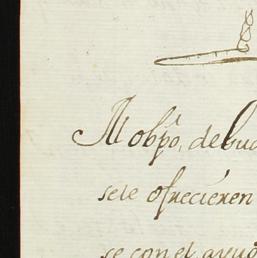 Al obpo, de bue
sele ofrecieren
se con el ayu